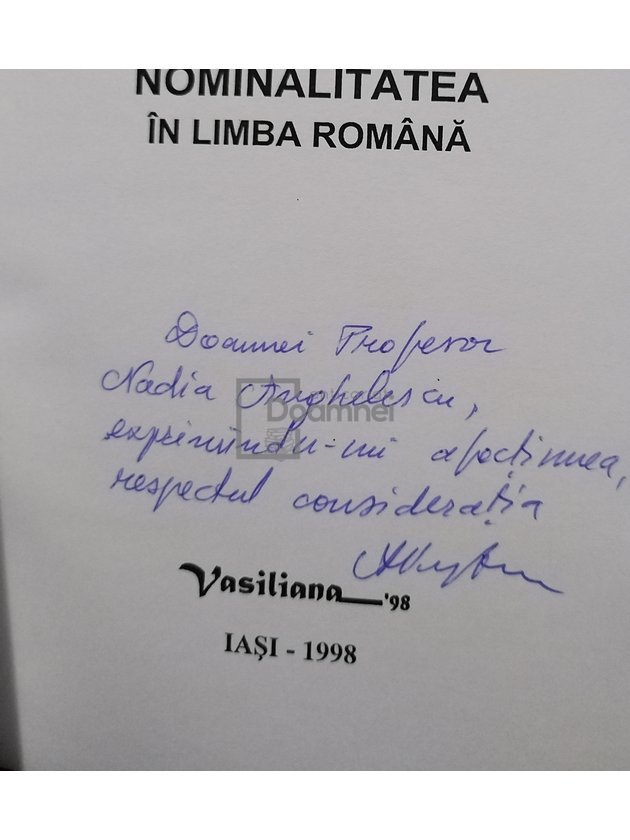 NOMINALITATEA
ÎN LIMBA ROMÂNĂ
Doamnei Profesor
Nadia Anghelescu,
exprimîndu-mi afecțiunea,
respectul considerația
Doamnei
Vasiliana '98
IAŞI - 1998